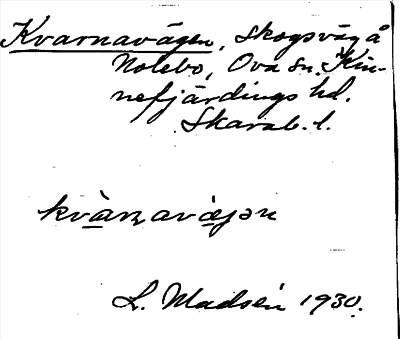 Kvarnavägen, Skogsväg å
Nolebo, Ova sn. Kin-
nefjärdings hd.
Skarab. l.
kvànavæ̀jən
L. Madsén 1930.